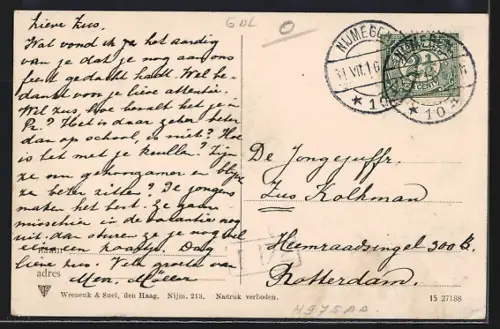 Lieve Zus.
Wat vond ik je het aardig
van je dat je nog aan ons
feest gedacht hadt. Wel be-
dankt voor je lieve attentie.
Wel Zus, hoe bevalt het je in
Pr.? Het is daar zeker beter
dan op school, is niet? Hoe
is het met je
ze nu gekomen en blijven
ze beter zitten? De jongens
maken het best. Ze gaan
misschien in de vacanties nog
uit. dan sturen ze je nog wel
eens een kaartje. Dag
lieve Zus. Vele groeten van
Mevr. Müller
naam
adres
GDL
0
NIJMEGEN
31.VII.16
* 10
NIJMEGEN
* 10
2½
CENT
De Jongejuffr.
Zus Kolkman
Heemraadsingel 300 b.
Rotterdam.
H975AA
Weenenk & Snel, den Haag, Nijm. 213. Nadruk verboden.
15 27188